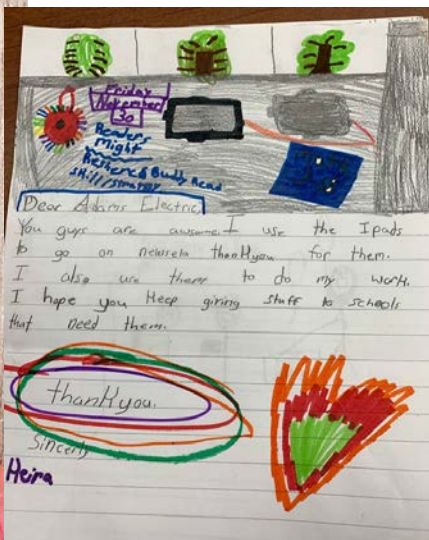 Friday
November
30
Readers
Might
Buddy Read
skill/strategy
Dear Adams Electric,
You guys are awsome. I use the Ipads
to go on newsela thankyou for them.
I also use them to do my work.
I hope you Keep giving stuff to schools
that need them.
thankyou.
Sincerly
Keira